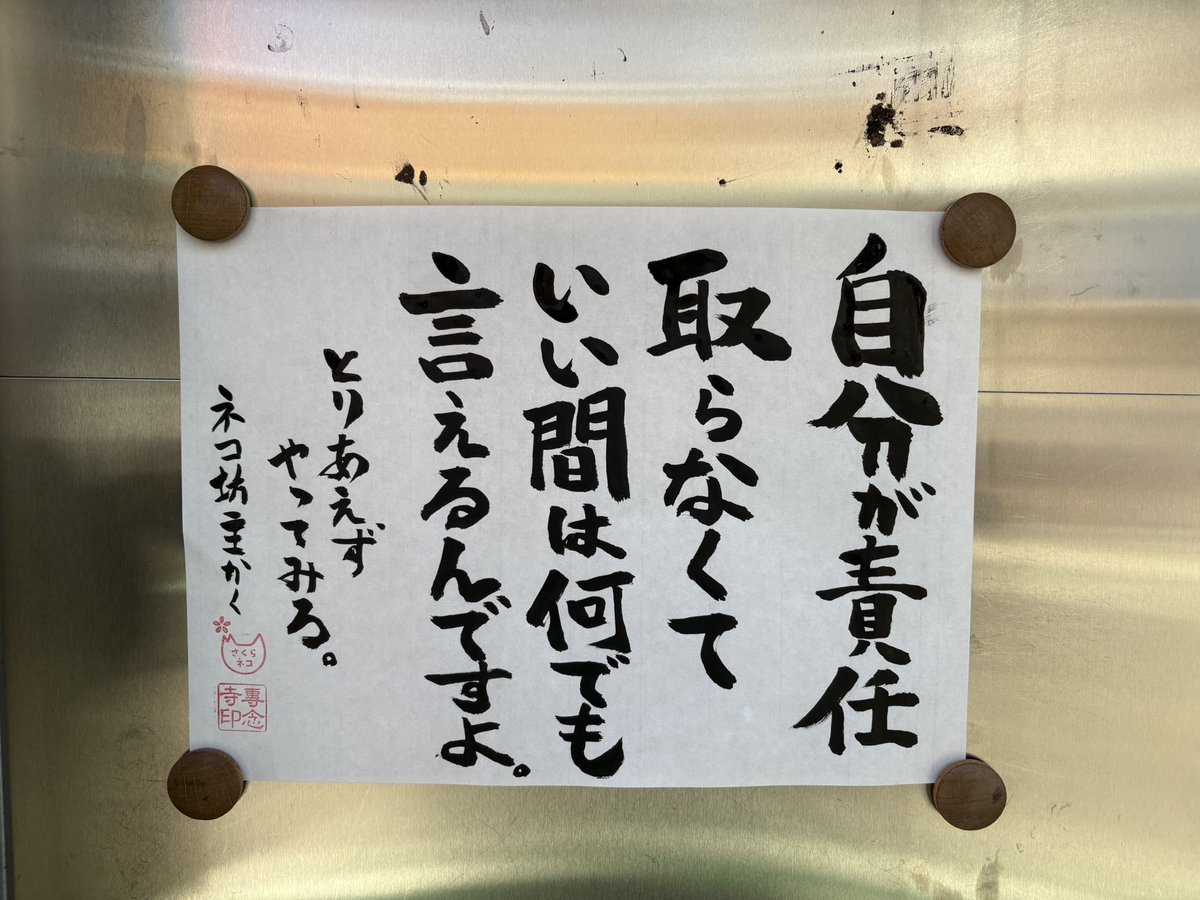 自分が責任
取らなくて
いい間は何でも
言えるんですよ。
とりあえず
やってみる。
ネコ坊主かく
さくら
ネコ
專念
寺印